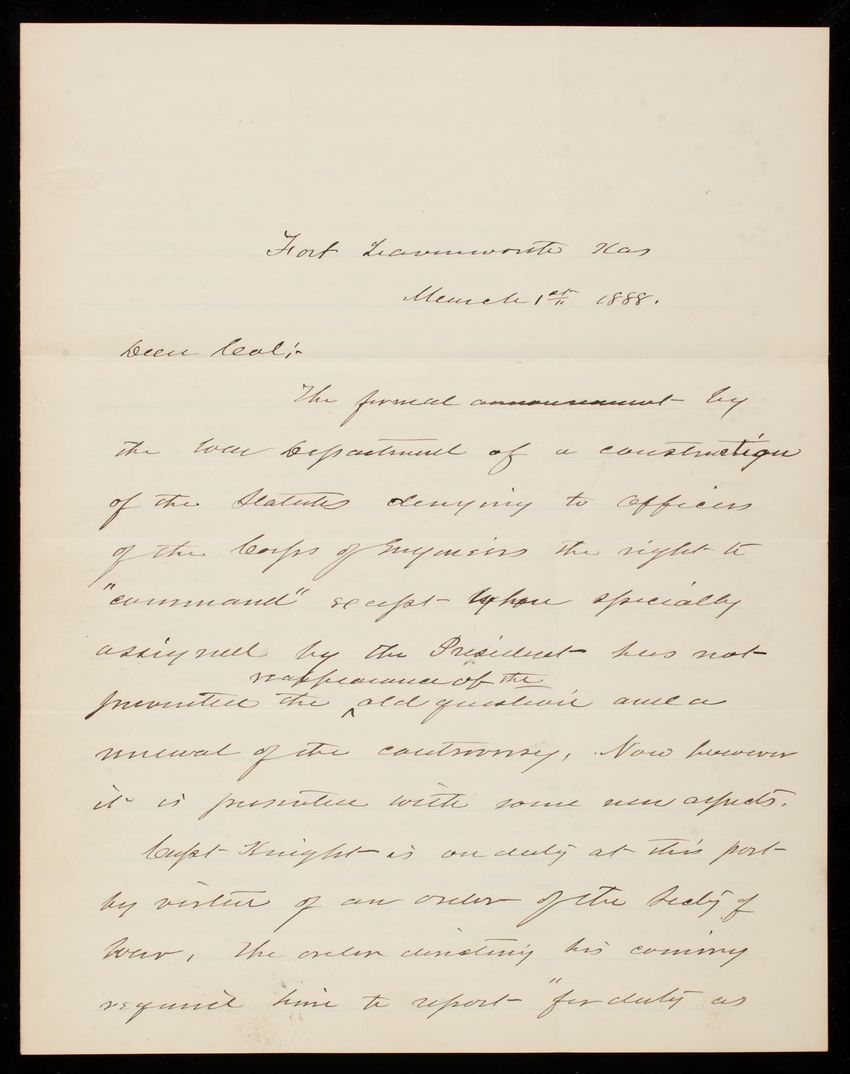 Fort Leavenworth Kas
March 1st 1888.
Dear Col;-
The formal announcement by
the War Department of a construction
of the Statutes denying to Officers
of the Corps of Engineers the right to
"command" except when specially
assigned by the President has not
reappearance of the
prevented the ^ old question and a
renewal of the controversy. Now however
it is presented with some new aspects.
Capt Knight is on duty at this post
by virtue of an order of the Secty of
War, The order directing his coming
required him to report "for duty as